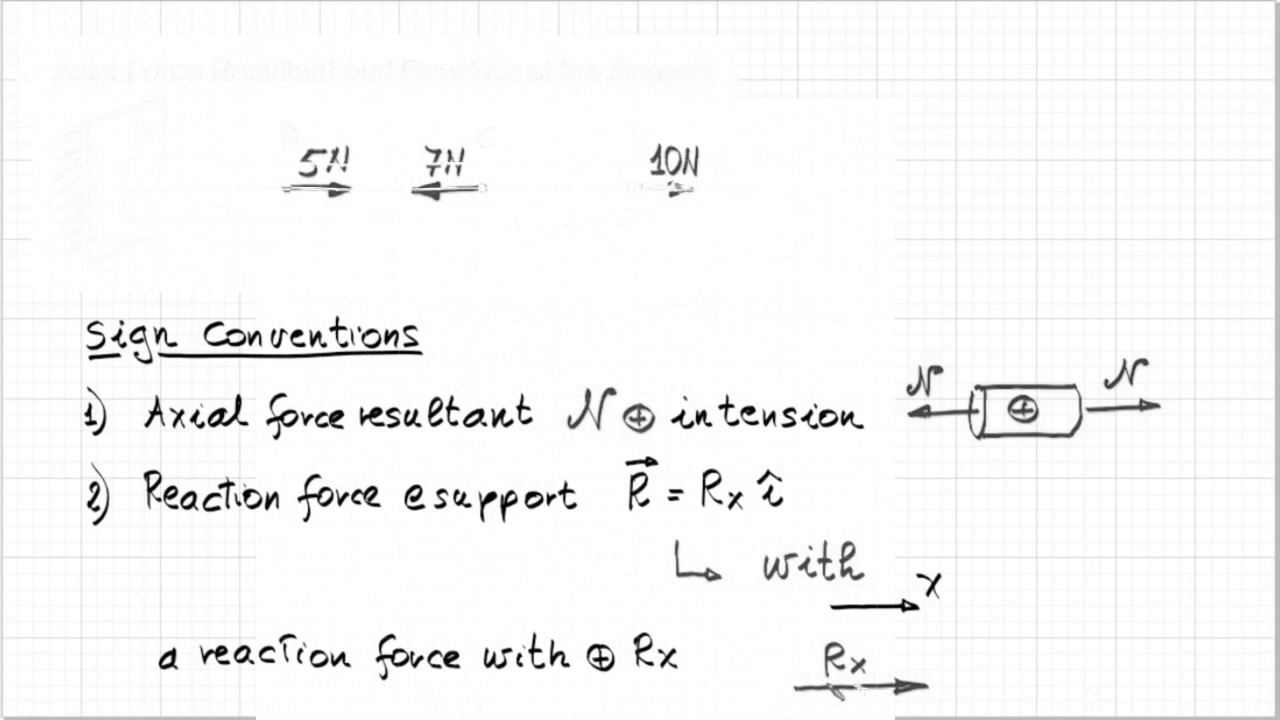 Axial Force Resultant and Reaction at the Support
5N 7N 10N
Sign Conventions
1) Axial force resultant N ⊕ in tension
N ⊕ N
2) Reaction force @ support R⃗ = Rx î
↳ with
x
a reaction force with ⊕ Rx
Rx